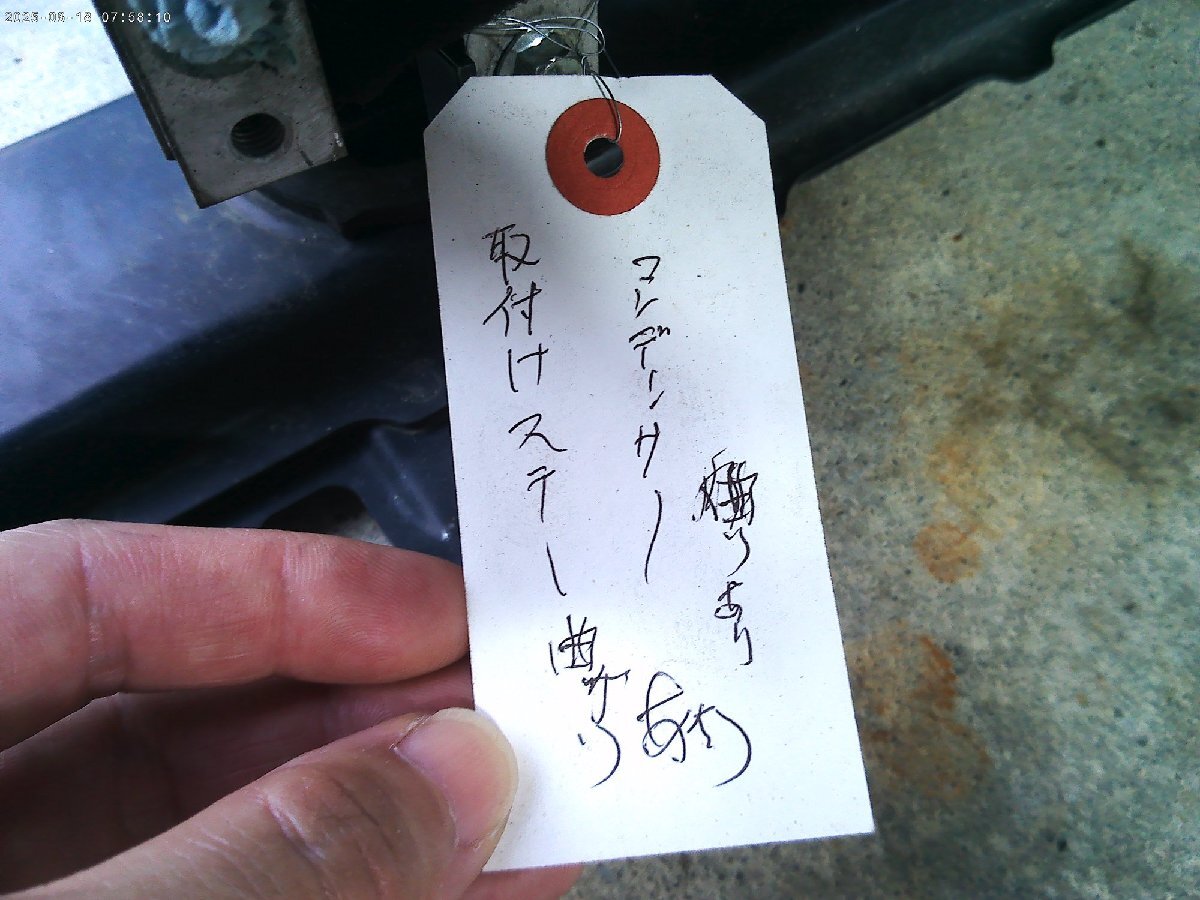 2025-06-18 07:58:10
りあり
コンデンサー
取付けステー曲がり
あり